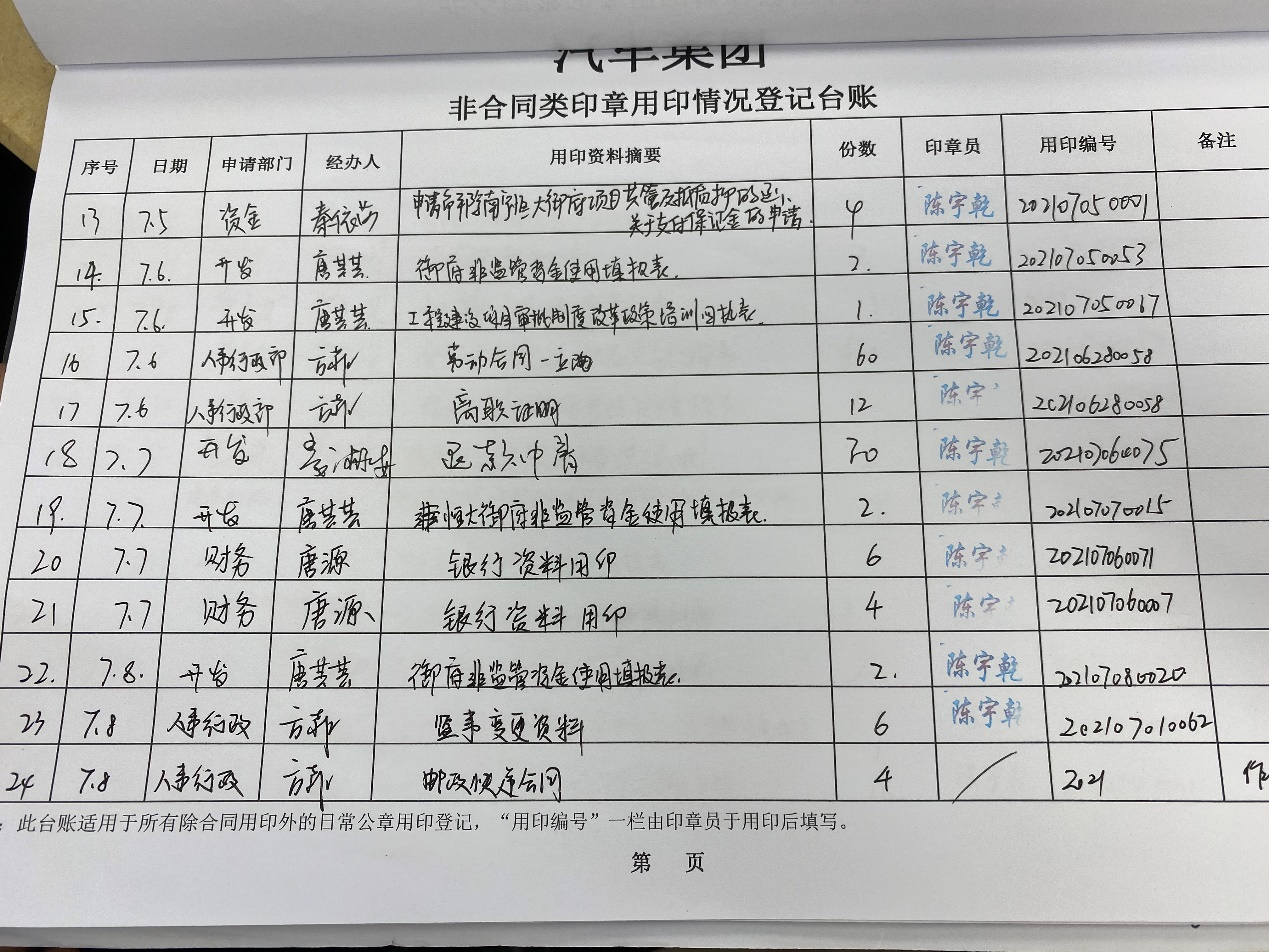 汽车集团
非合同类印章用印情况登记台账
序号 日期 申请部门 经办人 用印资料摘要 份数 印章员 用印编号 备注
13 7.5 资金 秦依 申请 南宁恒大御府项目共管及抵质押的
关于支付保证金的申请. 4 陈宇乾 202107050001
14. 7.6. 开发 唐芸芸 御府非监管资金使用填报表. 2. 陈宇乾 202107050053
15. 7.6. 开发 唐芸芸 工程建设项目审批制度改革政策培训回执表. 1. 陈宇乾 202107050067
16 7.6 人事行政部 方 劳动合同 60 陈宇乾 202106280058
17 7.6 人事行政部 方 离职证明 12 陈宇 202106280058
18 7.7 开发 退款申请 70 陈宇乾 202107060075
19. 7.7. 开发 唐芸芸 恒大御府非监管资金使用填报表. 2. 陈宇 202107070015
20 7.7 财务 唐源 银行资料用印 6 陈宇 202107060071
21 7.7 财务 唐源 银行资料用印 4 陈宇 202107060007
22. 7.8. 开发 唐芸芸 御府非监管资金使用填报表. 2. 陈宇乾 202107080020
23 7.8 人事行政 方 监事变更资料 6 陈宇乾 202107010062
24 7.8 人事行政 方 邮政快递合同 4 / 2021 作
：此台账适用于所有除合同用印外的日常公章用印登记，“用印编号”一栏由印章员于用印后填写。
第 页